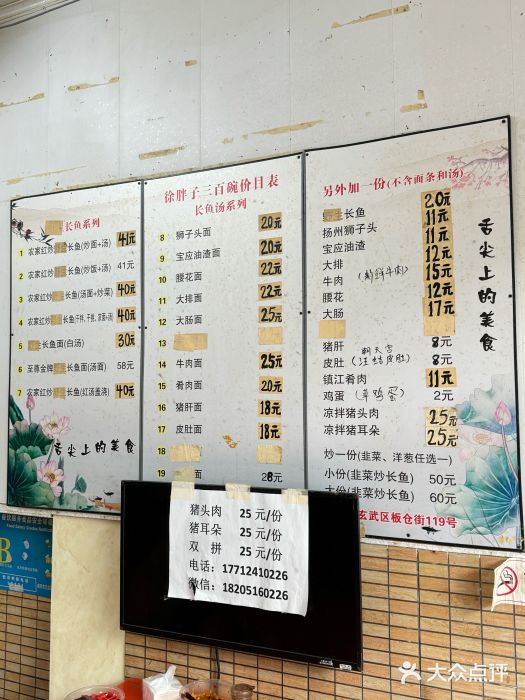 长鱼系列
1 农家红炒长鱼(炒面+汤) 41元
2 农家红炒长鱼(炒饭+汤) 41元
3 农家红炒长鱼(汤面+炒菜) 40元
4 农家红炒长鱼(干拌,干捞,凉面+汤) 40元
5 长鱼面(白汤) 30元
6 至尊金牌长鱼面(汤面) 58元
7 农家红炒长鱼(红汤盖浇) 40元
舌尖上的美食
徐胖子三百碗价目表
长鱼汤系列
8 狮子头面 20元
9 宝应油渣面 20元
10 腰花面 22元
11 大排面 22元
12 大肠面 25元
13
14 牛肉面 25元
15 肴肉面 20元
16 猪肝面 18元
17 皮肚面 18元
18
19 28元
另外加一份(不含面条和汤)
长鱼 20元
扬州狮子头 11元
宝应油渣 11元
大排 12元
牛肉(新鲜牛肉) 15元
腰花 12元
大肠 17元
猪肝 8元
皮肚(朝天宫汪结皮肚) 8元
镇江肴肉 11元
鸡蛋(草鸡蛋) 2元
凉拌猪头肉 25元
凉拌猪耳朵 25元
炒一份(韭菜、洋葱任选一)
小份(韭菜炒长鱼) 50元
大份(韭菜炒长鱼) 60元
玄武区板仓街119号
舌尖上的美食
猪头肉 25 元/份
猪耳朵 25 元/份
双 拼 25 元/份
电话:17712410226
微信:18205160226
餐饮服务食品安全等级
B
大众点评